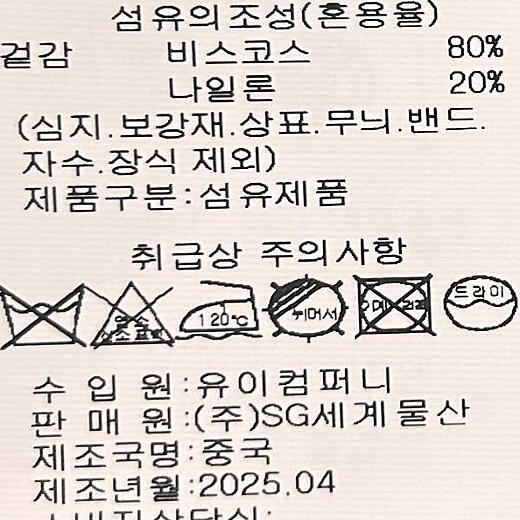 섬유의조성(혼용율)
겉감 비스코스 80%
나일론 20%
(심지.보강재.상표.무늬.밴드.
자수.장식 제외)
제품구분:섬유제품
취급상 주의사항
염소 120℃ 뉘어서 드라이
수 입 원:유이컴퍼니
판 매 원:(주)SG세계물산
제조국명:중국
제조년월:2025.04